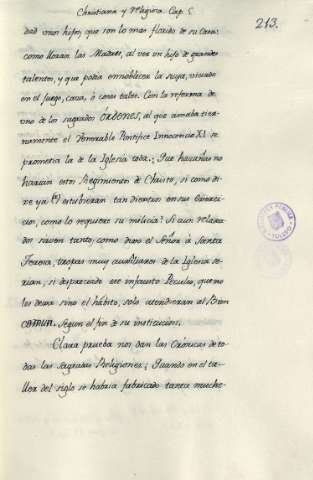 Christiana y Religiosa Cap. 5
213.
dad unos hijos, que son lo mas florido de su Casa:
como lloran las Madres, al ver un hijo de grandes
talentos, y que podia ennoblecer la suya, viciado
en el juego, caza, ó cosas tales. Con la reforma de
uno de los sagrados ÓRDENES, al que amaba tier-
namente el Venerable Pontifice Innocencio XI. se
prometia la de la Iglesia toda. ¡Que hazañas no
harian estos Regimientos de Christo, si como di-
xe ya estubieran tan diestros en sus exerci-
cios, como lo requiere su milicia! Si aun relaxa-
dos sirven tanto, como dixo el Señor á Santa
Teresa, tropas muy auxiliares de la Iglesia se-
rian, si despreciado este infausto Peculio, que no
les dexa sino el hábito, solo atendieran al Bien
COMUN. Segun el fin de su institucion.
Clara prueba nos dan las Crónicas de to-
das las sagradas Religiones; Quando en el ta-
ller del siglo se habria fabricado tanta muche-